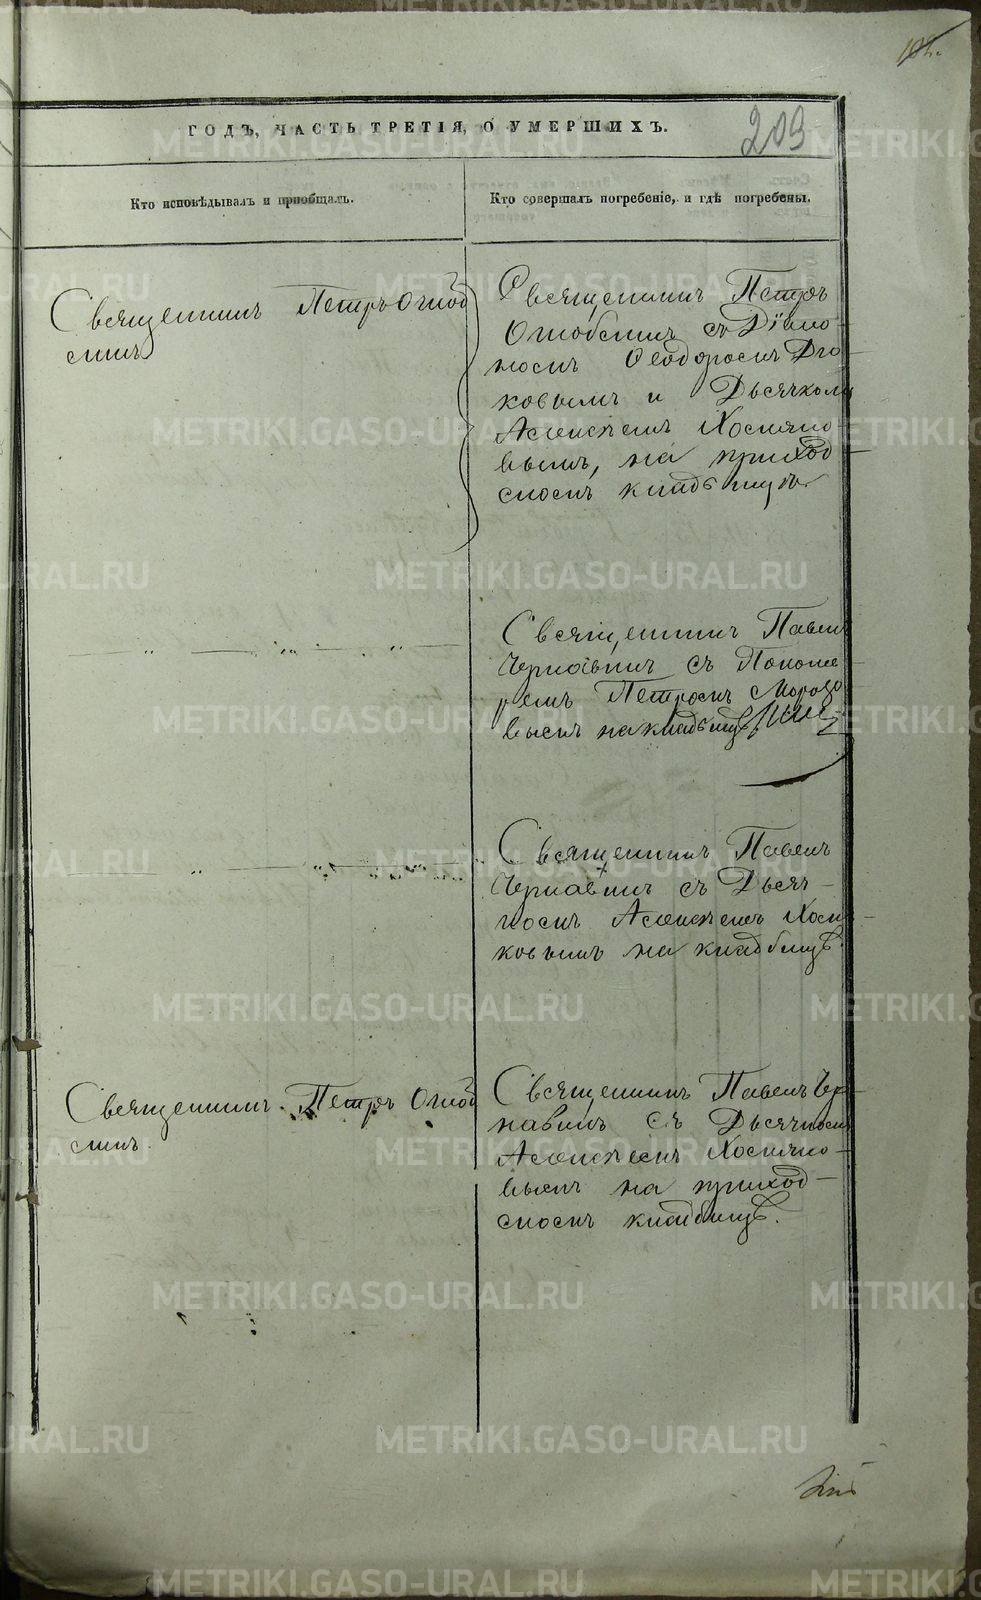 209
ГОДЪ, ЧАСТЬ ТРЕТІЯ, О УМЕРШИХЪ.
Кто исповѣдывалъ и пріобщалъ.
Кто совершалъ погребеніе, и гдѣ погребены.
Священникъ Петръ
скій
Священникъ Петръ
съ Діако-
номъ Ѳеодоромъ
ковымъ и Дьячкомъ
Алексѣемъ
вымъ, на приход
скомъ кладбищѣ
Священникъ Павелъ
Чернавинъ съ Пономо
ремъ Петромъ Морозо
вымъ на кладбищѣ
Священникъ Павелъ
Чернавинъ съ Дьяч-
комъ Алексѣемъ
ковымъ на кладбищѣ.
Священникъ Петръ
скій.
Священникъ Павелъ Чер-
навинъ съ Дьячкомъ
Алексѣемъ
вымъ на приход-
скомъ кладбищѣ.
METRIKI.GASO-URAL.RU